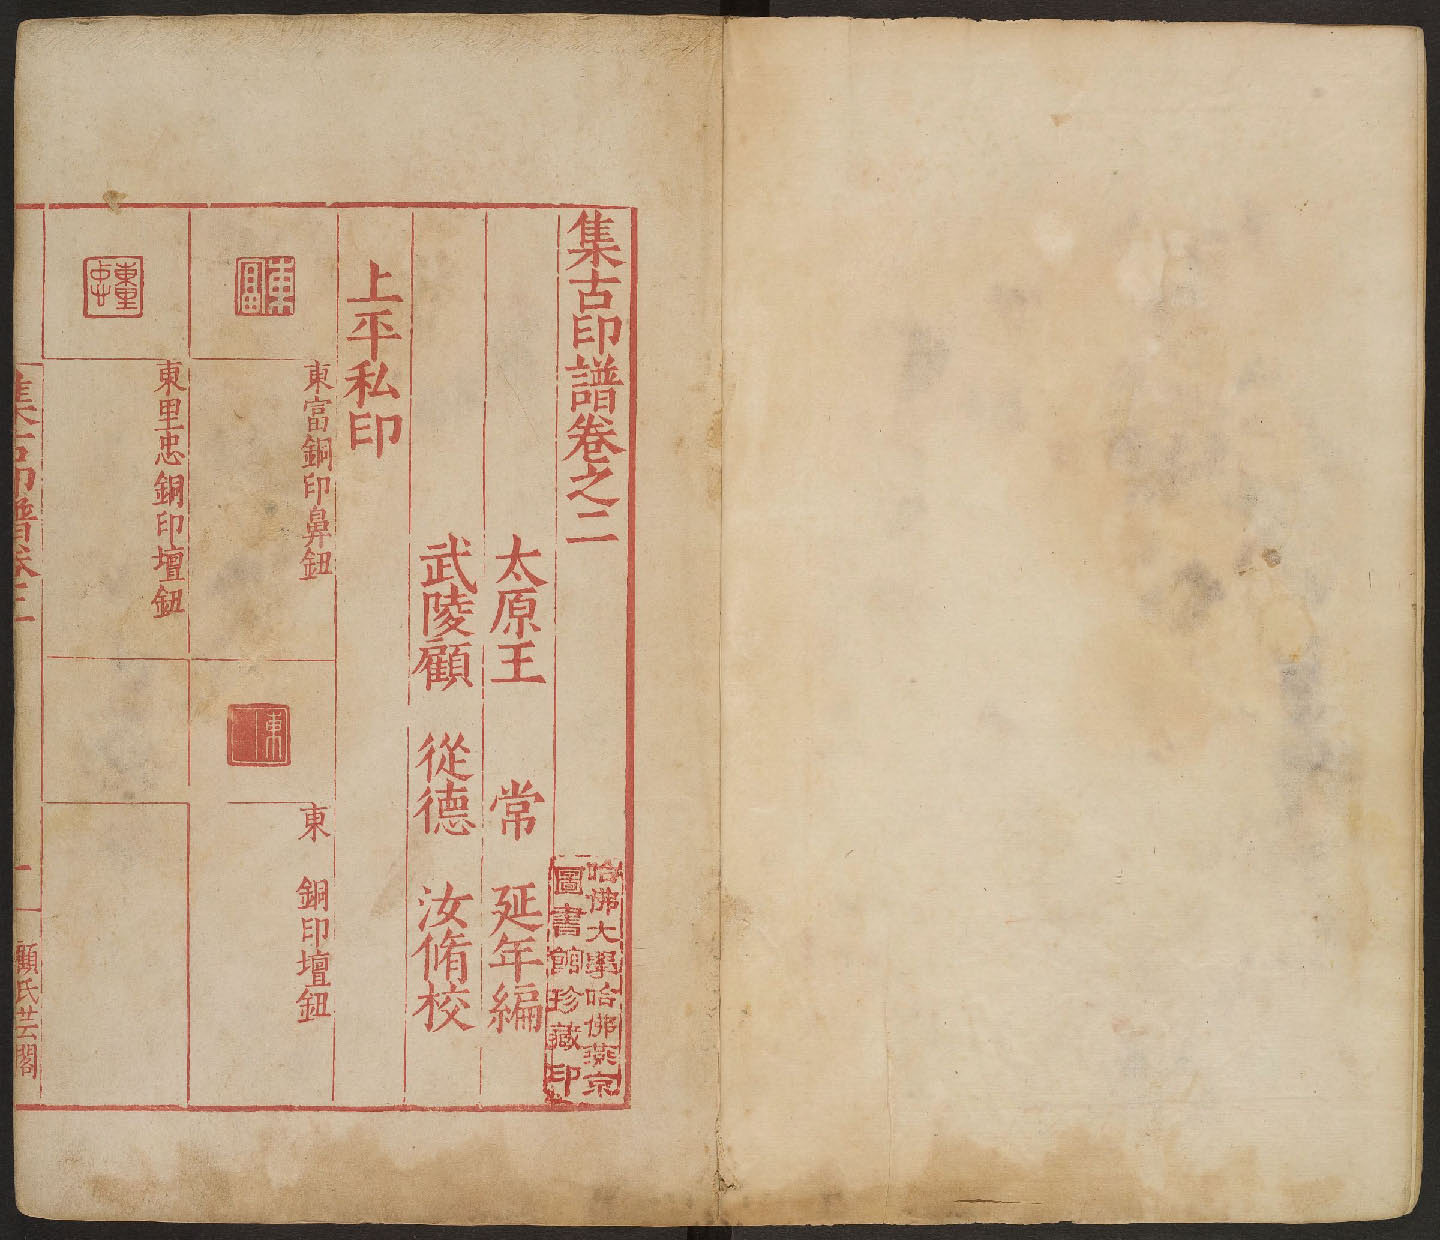 集古印譜卷之二
太原王　常　延年編
武陵顧　從德　汝脩校
哈佛大學哈佛燕京
圖書館珍藏印
上平私印
東富
東富銅印鼻鈕
東
東　銅印壇鈕
東里忠
東里忠銅印壇鈕
集古印譜卷二
一
顧氏芸閣